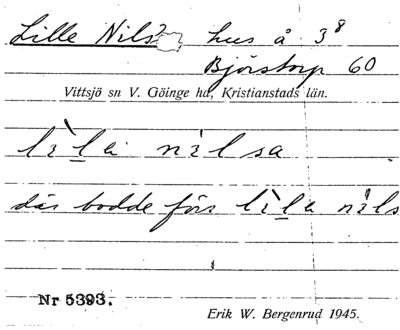 Lille Nils hus å 3⁸
Björstorp 60
Vittsjö sn V. Göinge hd, Kristianstads län.
lìla nilsa
där bodde förr lìla nils
Nr 5393.
Erik W. Bergenrud 1945.